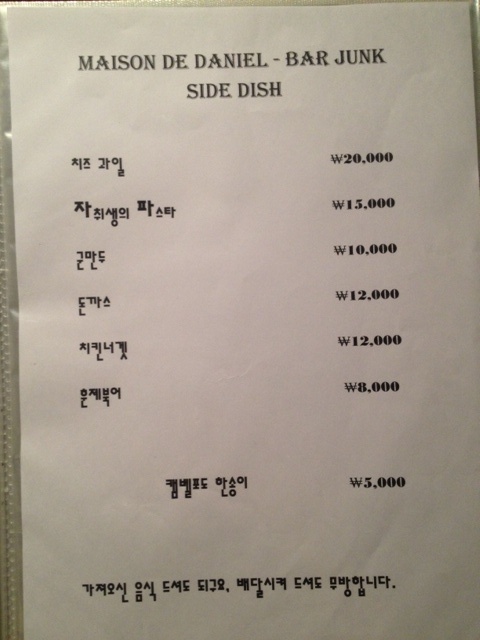 MAISON DE DANIEL - BAR JUNK
SIDE DISH
치즈 과일 ₩20,000
자취생의 파스타 ₩15,000
군만두 ₩10,000
돈까스 ₩12,000
치킨너겟 ₩12,000
훈제북어 ₩8,000
캠벨포도 한송이 ₩5,000
가져오신 음식 드셔도 되구요, 배달시켜 드셔도 무방합니다.